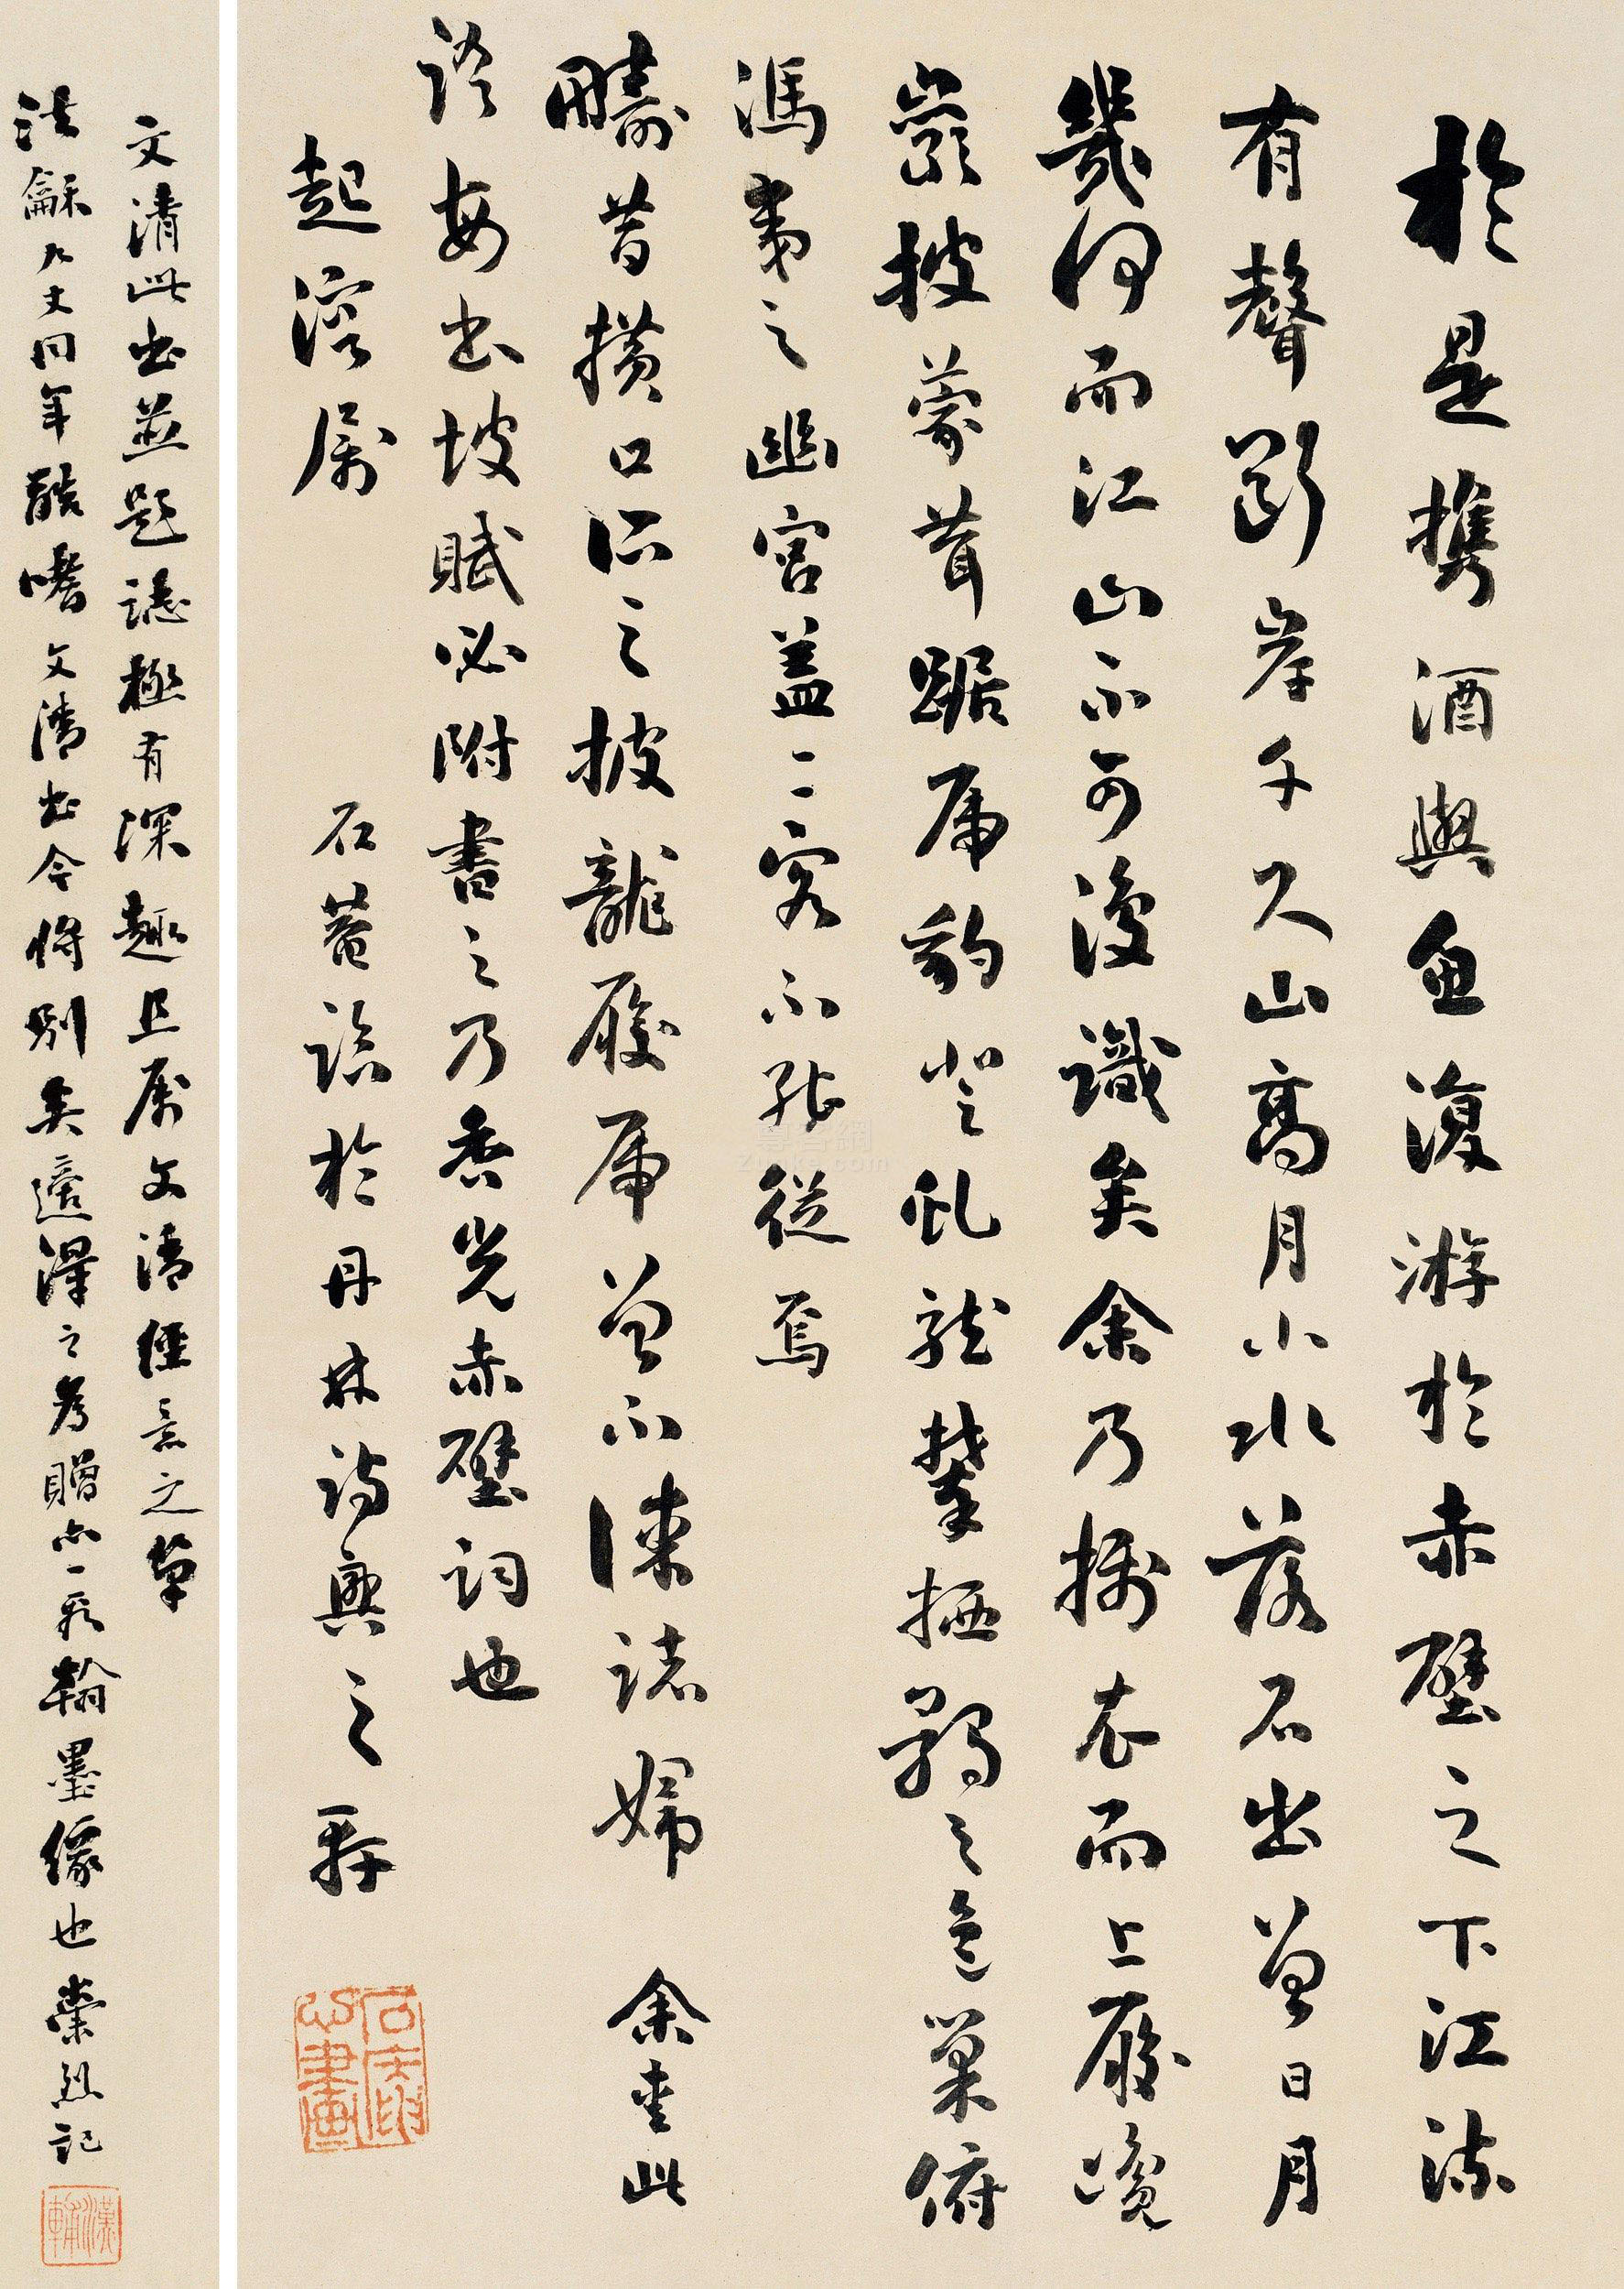 於是携酒與魚復游於赤壁之下江流
有聲斷岸千尺山高月小水落石出曾日月
幾何而江山不可復識矣余乃攝衣而上履巉
巖披蒙茸踞虎豹登虬龍攀栖鶻之危巢俯
馮夷之幽宮蓋二客不能從焉
疇昔横口所之披龍履虎曾不悚諸婦 余愛此
語每書坡賦必附書之乃香光赤壁詞也
起溶属 石菴識於丹林詩興之軒
文清此書並題識極有深趣且属文清經意之筆
法龢九丈同年酷嗜文清書今將别矣適得之為贈亦一段翰墨缘也榮烈記